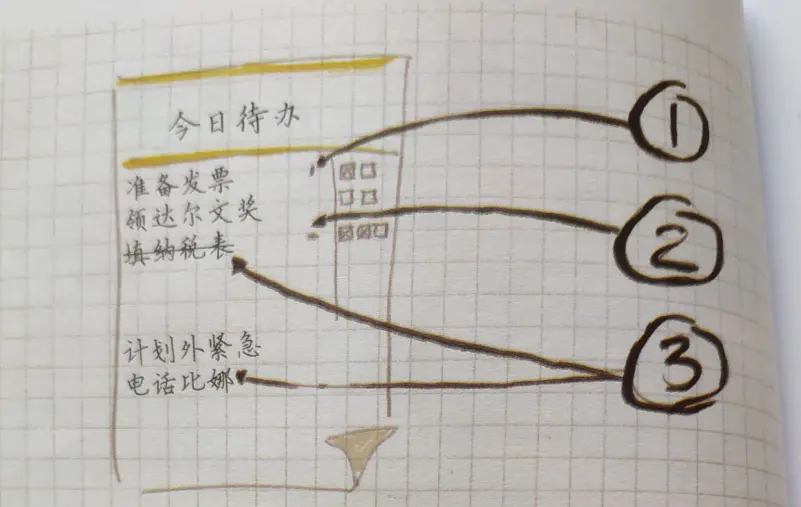 今日待办
准备发票
领达尔文奖
填纳税表
计划外紧急
电话比娜
1
2
3